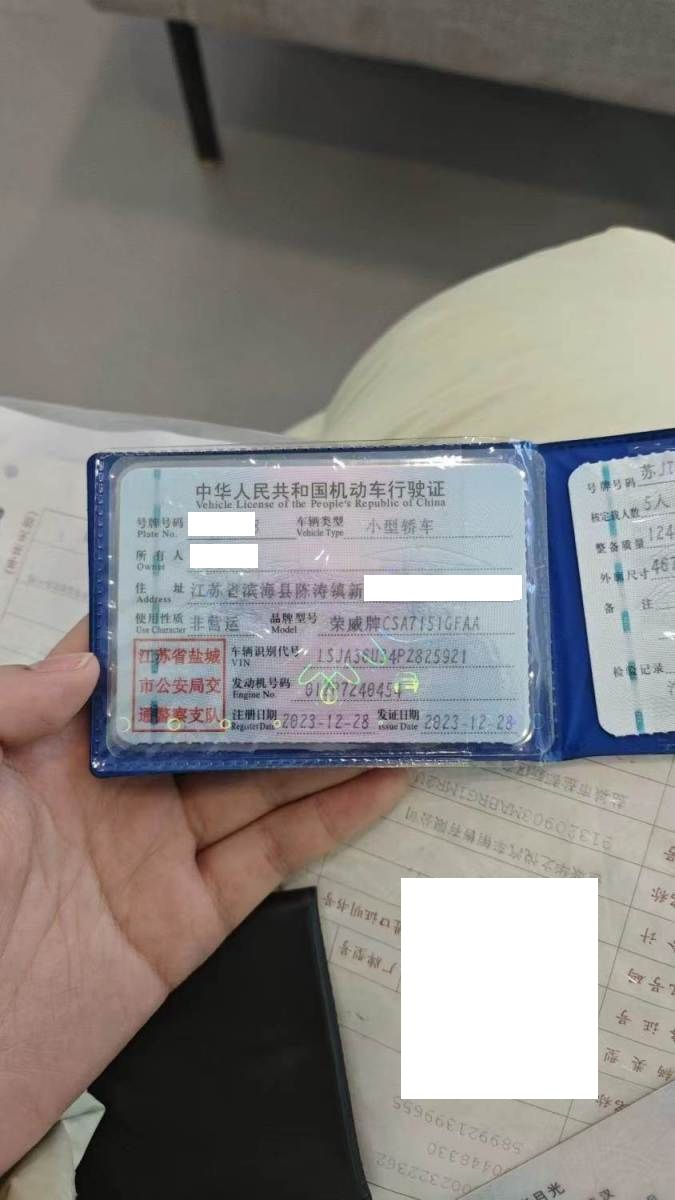 中华人民共和国机动车行驶证
Vehicle License of the People's Republic of China
号牌号码 车辆类型 小型轿车
Plate No. Vehicle Type
所有人
Owner
住址 江苏省滨海县陈涛镇新
Address
使用性质 非营运 品牌型号 荣威牌CSA7151GFAA
Use Character Model
江苏省盐城
市公安局交
通警察支队
车辆识别代号 LSJA36U34PZ825921
VIN
发动机号码
Engine No.
注册日期 2023-12-28 发证日期 2023-12-28
Register Date Issue Date
号牌号码 苏JT
核定载人数 5人
整备质量 124
外廓尺寸 467
备注
检验记录
91320903MABRG1MR2U
盐城华之悦汽车销售有限公司
进口证明书号
厂牌型号
名称
合计
证号
类型
名称
589921399655